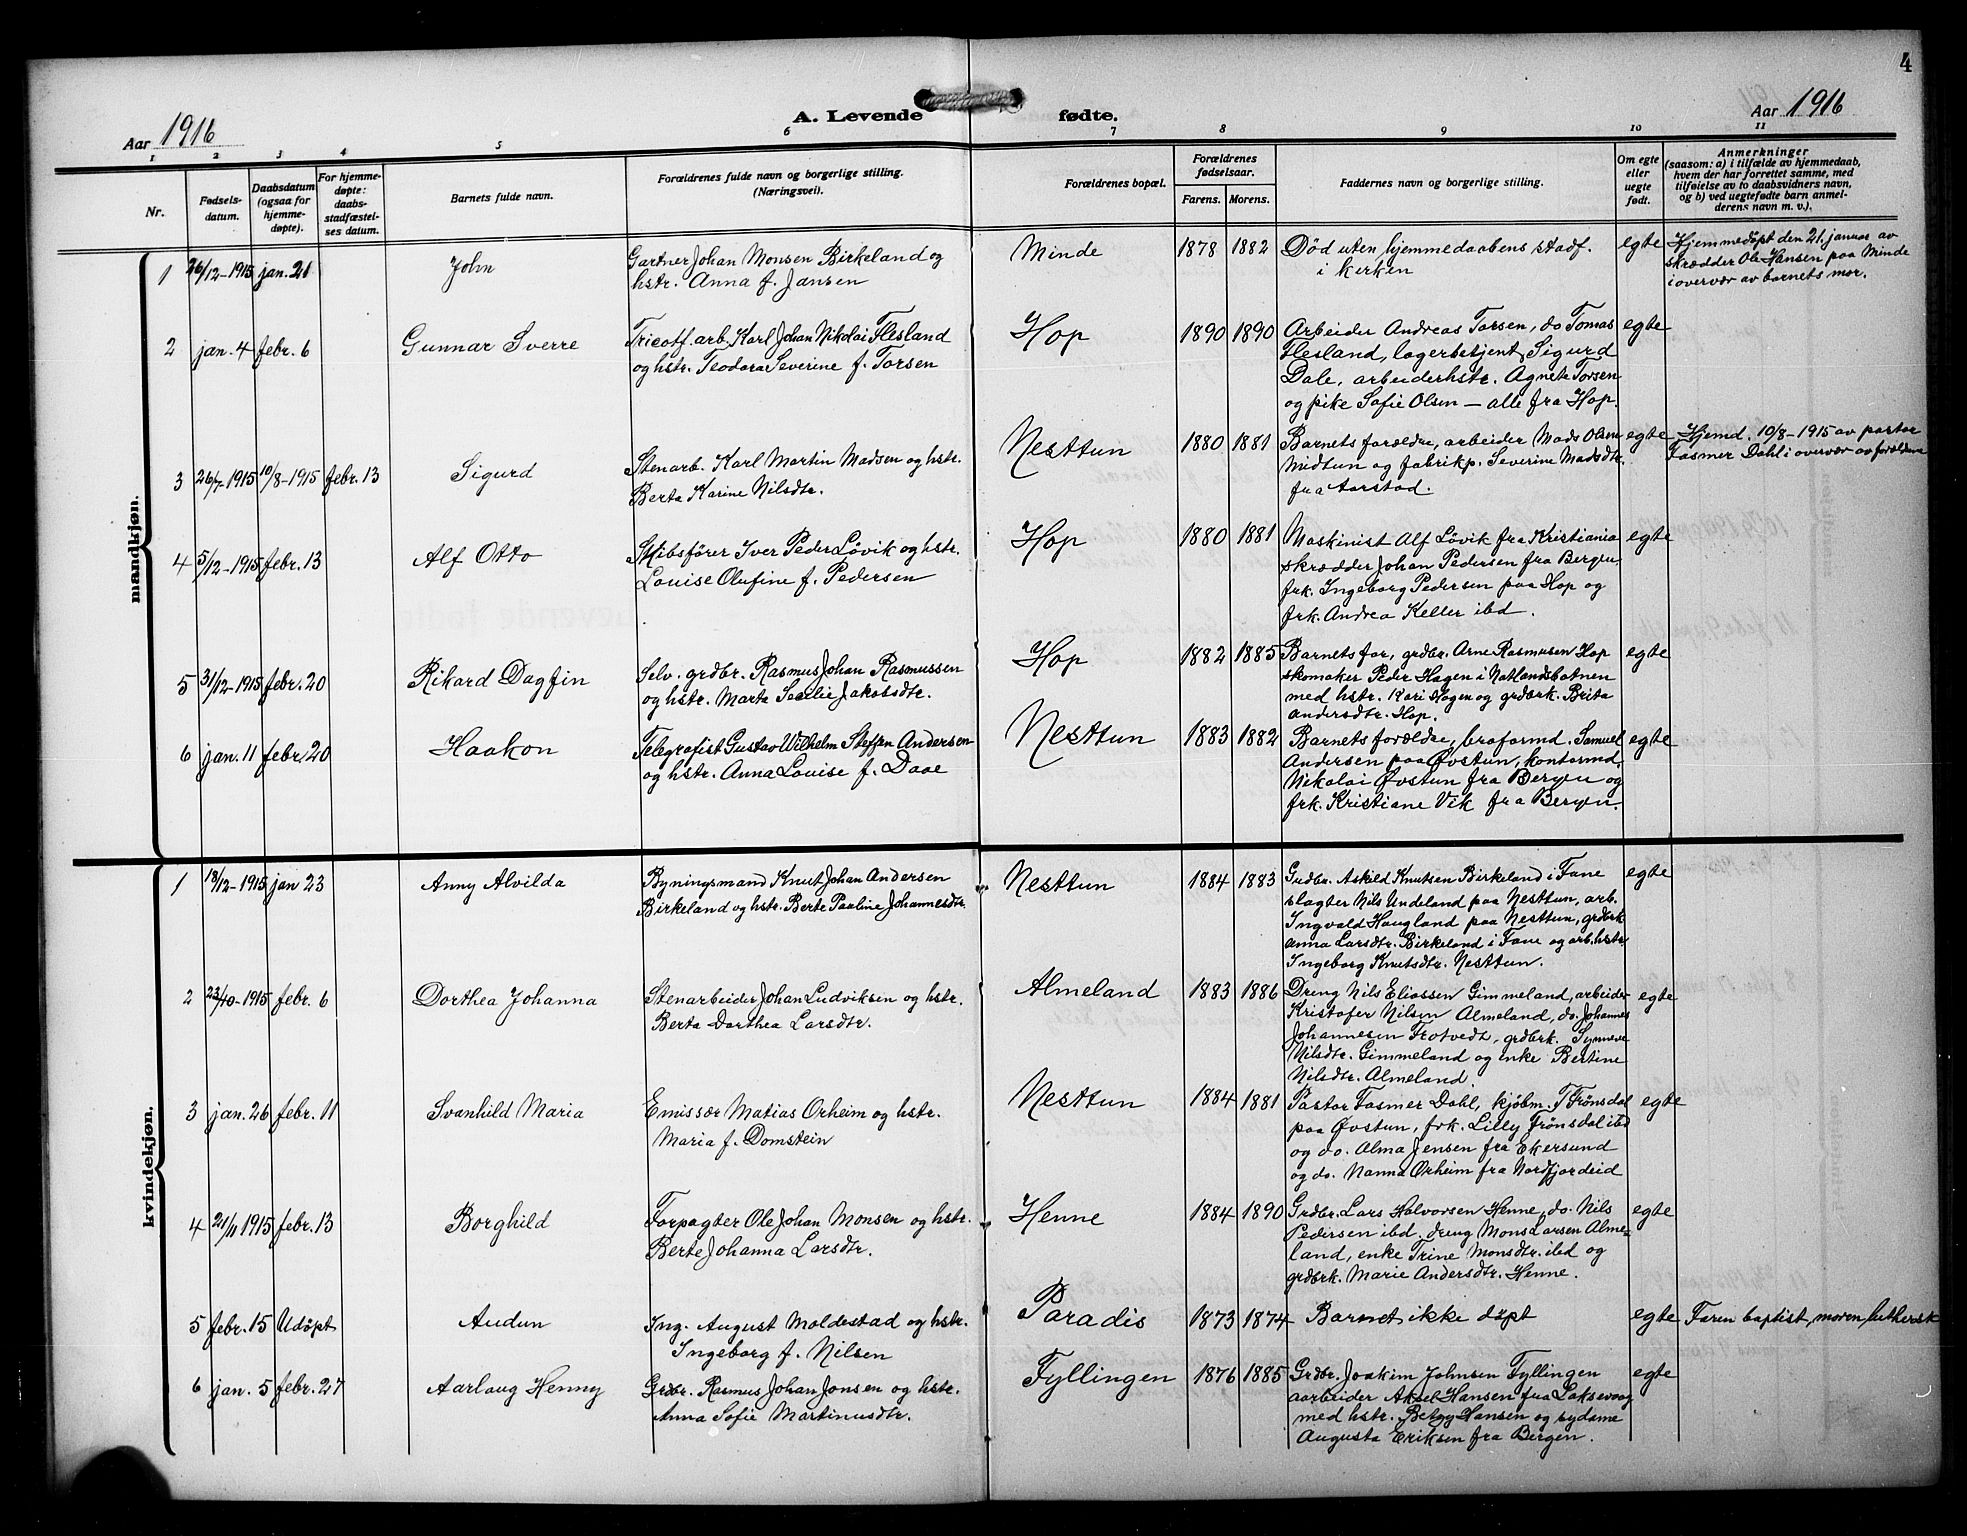 4
A. Levende fødte.
Aar 1916
Aar 1916
1 2 3 4 5 6 7 8 9 10 11
Nr.
Fødsels-
datum.
Daabsdatum
(ogsaa for
hjemme-
døpte).
For hjemme-
døpte:
daabs-
stadfæstel-
ses datum.
Barnets fulde navn.
Forældrenes fulde navn og borgerlige stilling.
(Næringsvei).
Forældrenes bopæl.
Forældrenes
fødselsaar.
Farens. Morens.
Faddernes navn og borgerlige stilling.
Om egte
eller
uegte
født.
Anmerkninger
(saasom: a) i tilfælde av hjemmedaab,
hvem der har forrettet samme, med
tilføielse av to daabsvidners navn,
og b) ved uegtefødte barn anmel-
derens navn m. v.).
mandkjøn.
1 26/12-1915 jan. 21 John
Gartner Johan Monsen Birkeland og
hstr. Anna f. Jansen
Minde 1878 1882
Død uten hjemmedaabens stadf.
i kirken
egte
Hjemmedøpt den 21. januar av
skrædder Ole Hansen paa Minde
i overvær av barnets mor.
2 jan. 4 febr. 6 Gunnar Sverre
Tricotf. arb. Karl Johan Nikolai Flesland
og hstr. Teodora Severine f. Torsen
Hop 1890 1890
Arbeider Andreas Torsen, do Tomas
Flesland, lagerbetjent Sigurd
Dale, arbeiderhstr. Agnete Torsen
og pike Sofie Olsen — alle fra Hop.
egte
3 26/7-1915 10/8-1915 febr. 13 Sigurd
Stenarb. Karl Martin Madsen og hstr.
Berta Karine Nilsdtr.
Nesttun 1880 1881
Barnets forældre, arbeider Mads Olsen
Midtun og fabrikp. Severine Madsdtr.
fra Aarstad.
egte
Hjemd. 10/8-1915 av pastor
Fasmer Dahl i overvær av forældrene
4 5/12-1915 febr. 13 Alf Otto
Skibsfører Iver Peder Løvik og hstr.
Louise Olufine f. Pedersen
Hop 1880 1881
Maskinist Alf Løvik fra Kristiania
skrædder Johan Pedersen fra Bergen,
frk. Ingeborg Pedersen paa Hop og
frk. Andrea Keller ibd.
egte
5 31/12-1915 febr. 20 Rikard Dagfin
Selv. grdbr. Rasmus Johan Rasmussen
og hstr. Marta Jakobsdtr.
Hop 1882 1885
Barnets far, grdbr. Arne Rasmusen Hop
skomaker Peder Hagen i Natlandsbotnen
med hstr. Kari Hagen og grdbrk. Brita
Andersdtr. Hop.
egte
6 jan. 11 febr. 20 Haakon
Telegrafist Gustav Wilhelm Steffen Andersen
og hstr. Anna Louise f. Daae
Nesttun 1883 1882
Barnets forældre, broformd. Samuel
Andersen paa Øvstun, kontormd.
Nikolai Øvstun fra Bergen og
frk. Kristiane Vik fra Bergen.
egte
kvindekjøn.
1 18/12-1915 jan 23 Anny Alvilda
Bygningsmand Knut Johan Andersen
Birkeland og hstr. Berte Pauline Johannesdtr.
Nesttun 1884 1883
Grdbr. Askild Knutsen Birkeland i Fane
slagter Nils Undeland paa Nesttun, arb.
Ingvald Haugland paa Nesttun, grdbrk
Anna Larsdtr. Birkeland i Fane og arb.hstr.
Ingeborg Knutsdtr. Nesttun.
egte
2 23/10-1915 febr. 6 Dorthea Johanna
Stenarbeider Johan Ludviksen og hstr.
Berta Dorthea Larsdtr.
Almeland 1883 1886
Dreng Nils Eliassen Gimmeland, arbeider
Kristofer Nilsen Almeland, do. Johannes
Johannesen Trotvedt, grdbrk. Synneve
Nilsdtr. Gimmeland og enke Bertine
Nilsdtr. Almeland.
egte
3 jan. 26 febr. 11 Svanhild Maria
Emissær Matias Orheim og hstr.
Maria f. Domstein
Nesttun 1884 1881
Pastor Fasmer Dahl, kjøbm. T Frønsdal
paa Øvstun, frk. Lilly Frønsdal ibd
og do. Alma Jensen fra Ekersund
og do. Nanna Orheim fra Nordfjordeid
egte
4 21/11 1915 febr. 13 Borghild
Forpagter Ole Johan Monsen og hstr.
Berte Johanna Larsdtr.
Henne 1884 1890
Grdbr. Lars Halvorsen Henne, do. Nils
Pedersen ibd. dreng Mons Larsen Alme-
land, enke Trine Monsdtr. ibd og
grdbrk. Marie Andersdtr. Henne.
egte
5 febr. 15 Udøpt Audun
Ing. August Moldestad og hstr.
Ingeborg f. Nilsen
Paradis 1873 1874
Barnet ikke døpt
egte
Faren baptist, moren luthersk
6 jan. 5 febr. 27 Aarlaug Henny
Grdbr. Rasmus Johan Jonsen og hstr.
Anna Sofie Martinusdtr.
Fyllingen 1876 1885
Grdbr. Joakim Johnsen Fyllingen
aarbeider Aksel Hansen fra Laksevaag
med hstr. Betzy Hansen og sydame
Augusta Eriksen fra Bergen.
egte